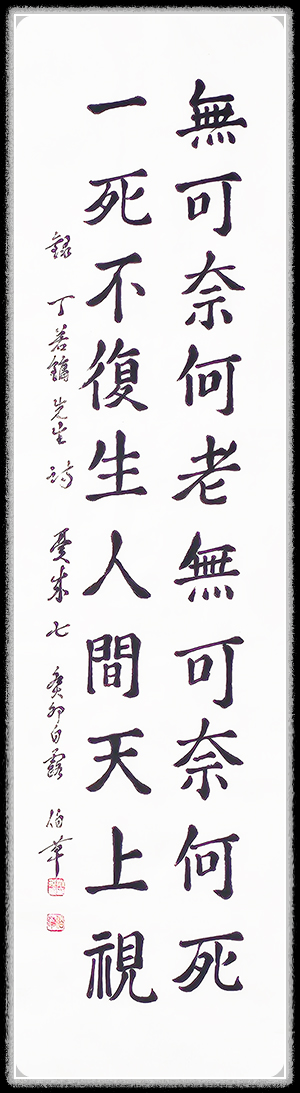 無可奈何老無可奈何死
一死不復生人間天上視
錄 丁若鏞先生詩 憂來七 癸卯白露 伯華